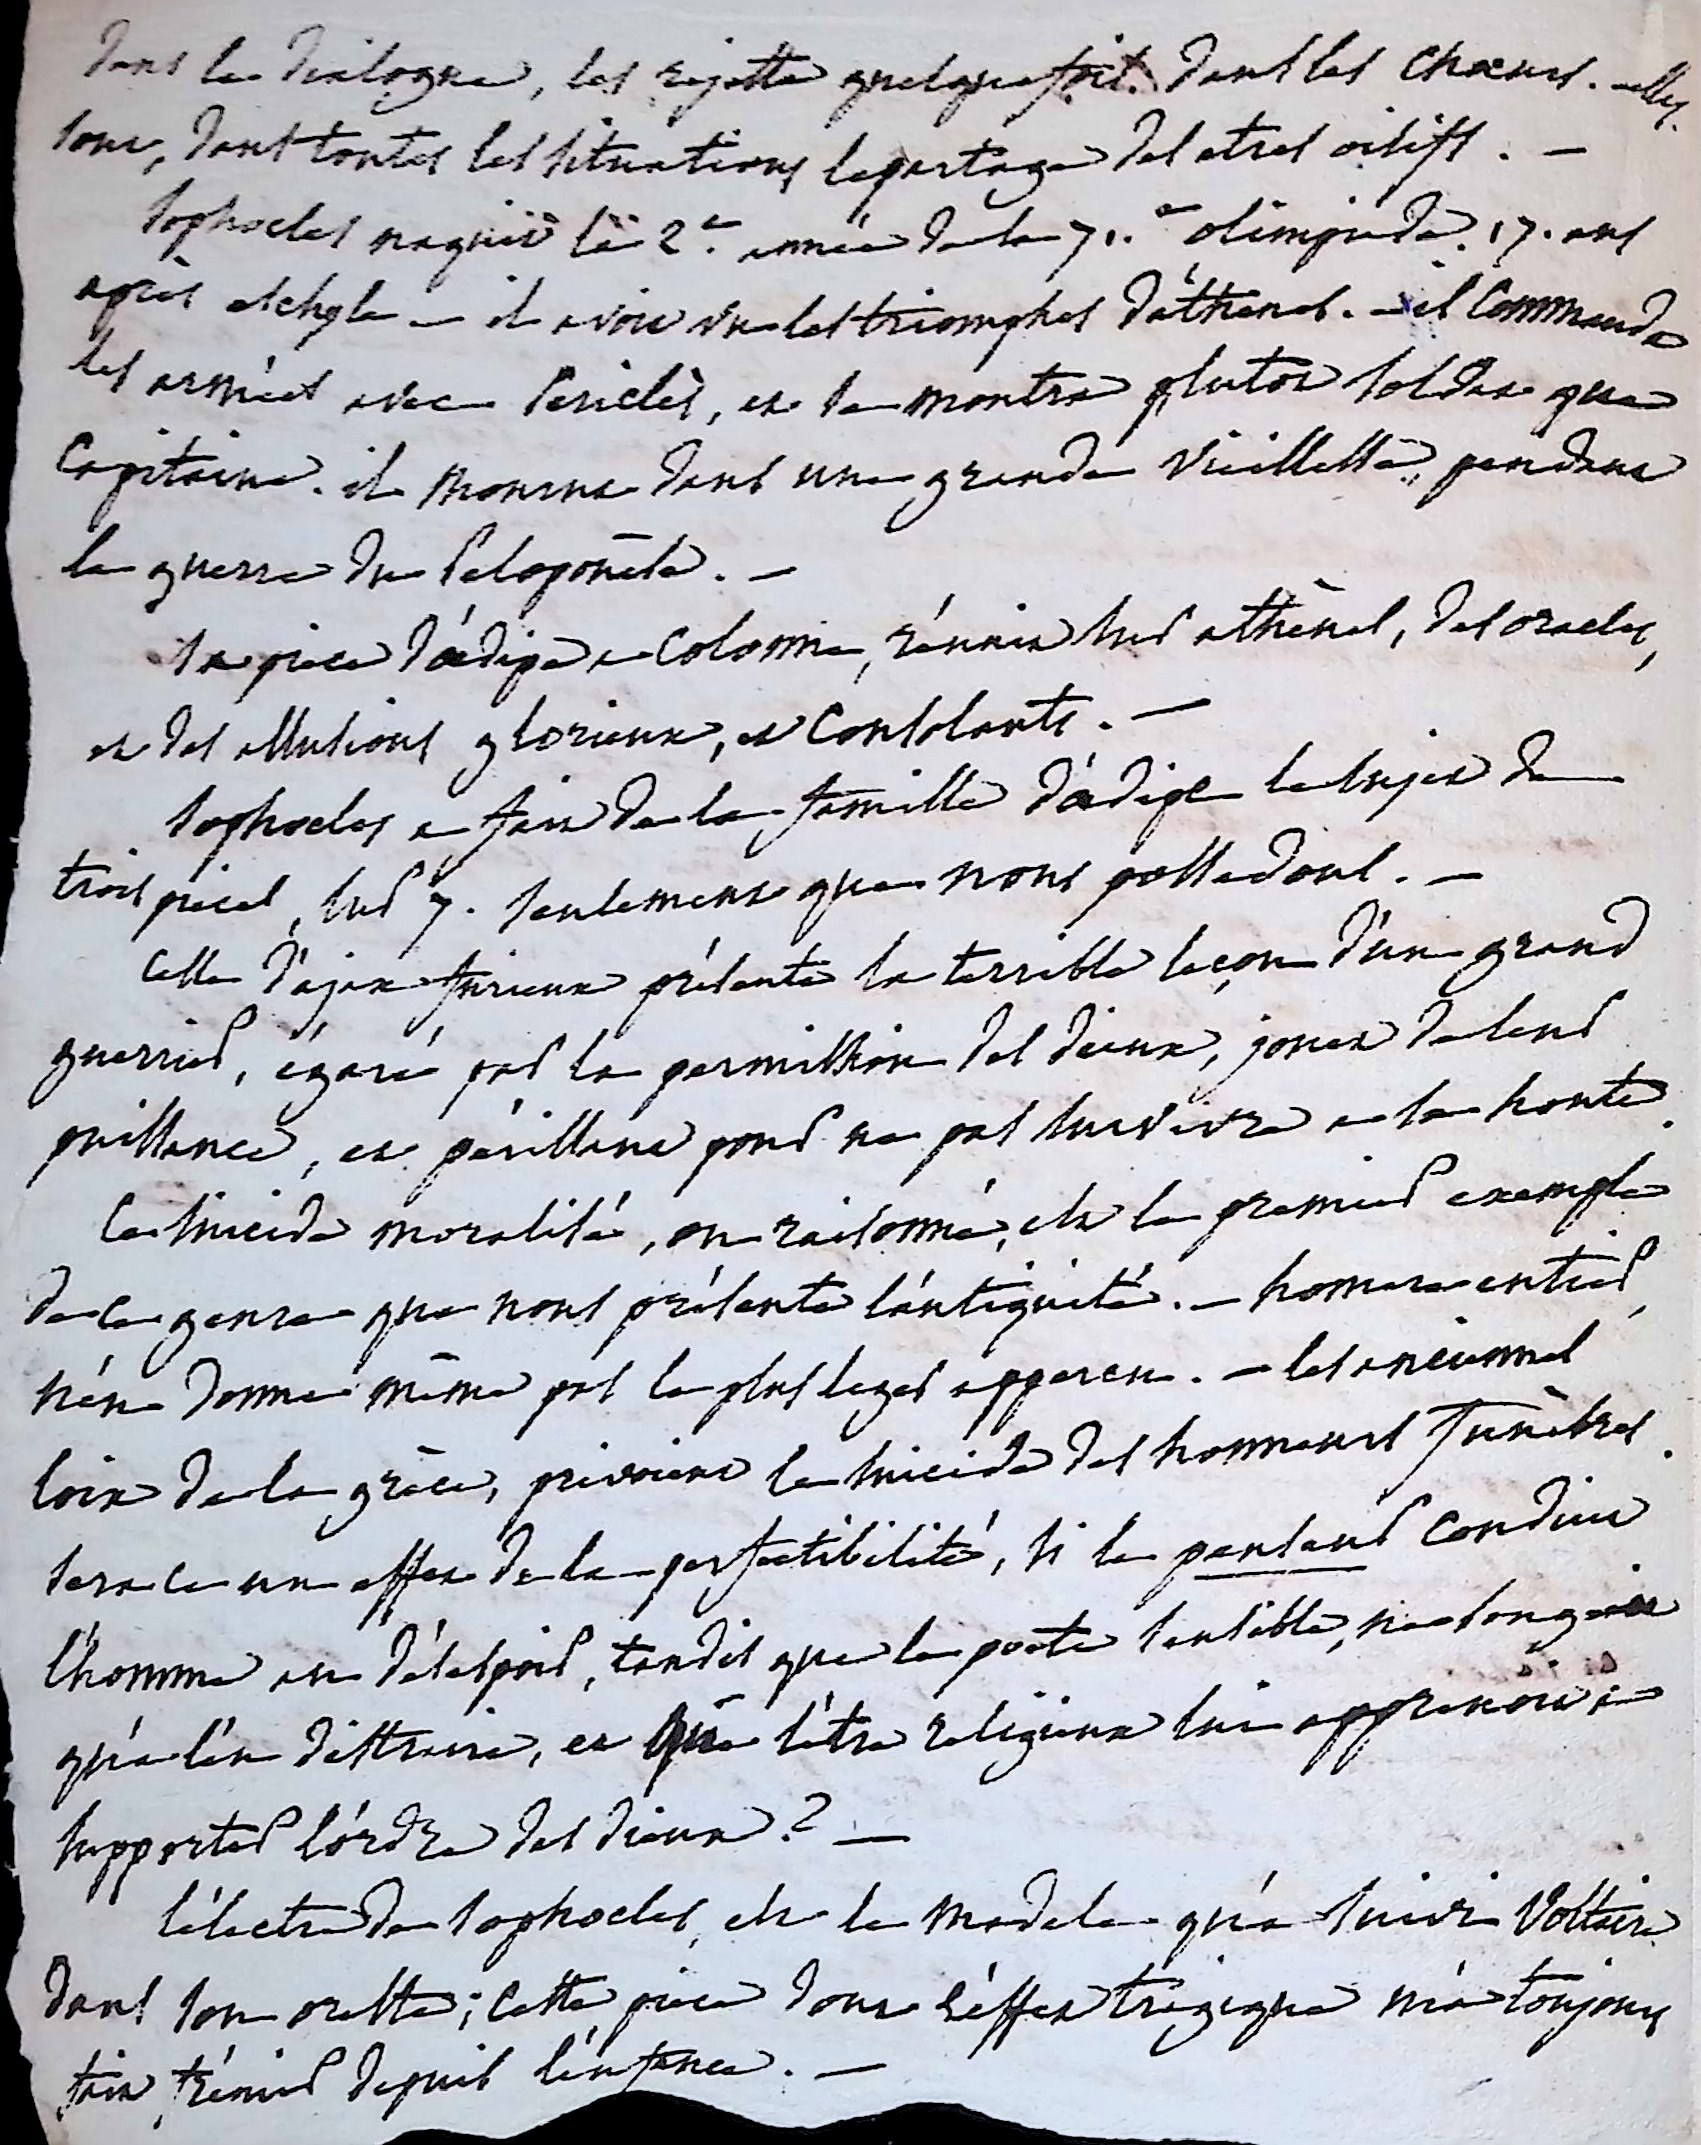 dans le dialogue, les rejette quelquefois dans les choeurs. elles
sont, dans toutes les situations le partage des etres oisifs. —
Sophocles naquit la 2e. année de la 71.e olimpiade. 17. ans
après eschyle — il avoit vu les triomphes d'athenes. — il commanda
les armées avec Periclès, et se montra plutot soldat que
capitaine. il mourut dans une grande vieillesse, pendant
la guerre du Peloponèse. —
Sa piece d'œdipe a Colonne, réunit sur athènes, des oracles,
et des allusions glorieux, et consolants. —
Sophocles a fait de la famille d'œdipe le sujet de
trois pieces, sur 7. seulement que nous possedons. —
Celle d'ajax furieux présente la terrible leçon d'un grand
guerrier, égaré par la permission des dieux, jouet de leur
puissance, et périssant pour ne pas survivre a la honte.
Ce suicide moralisé, ou raisonné, est le premier exemple
de ce genre que nous présente l'antiquité. — homere entier,
n'en donne même pas le plus leger apperçu. — les anciennes
loix de la grèce, privoient le suicide des honneurs funèbres.
sera ce un effet de la perfectibilité, si le penseur conduit
l'homme au désespoir, tandis que le poete sensible, ne songeoit
qu'a l'en distraire, et que l'être religieux lui apprenoit a
supporter l'ordre des dieux? —
l'électre de Sophocles, est le modele qu'a suivi Voltaire
dans son oreste; cette piece dont l'effet tragique m'a toujours
fait frémir depuis l'enfance. —